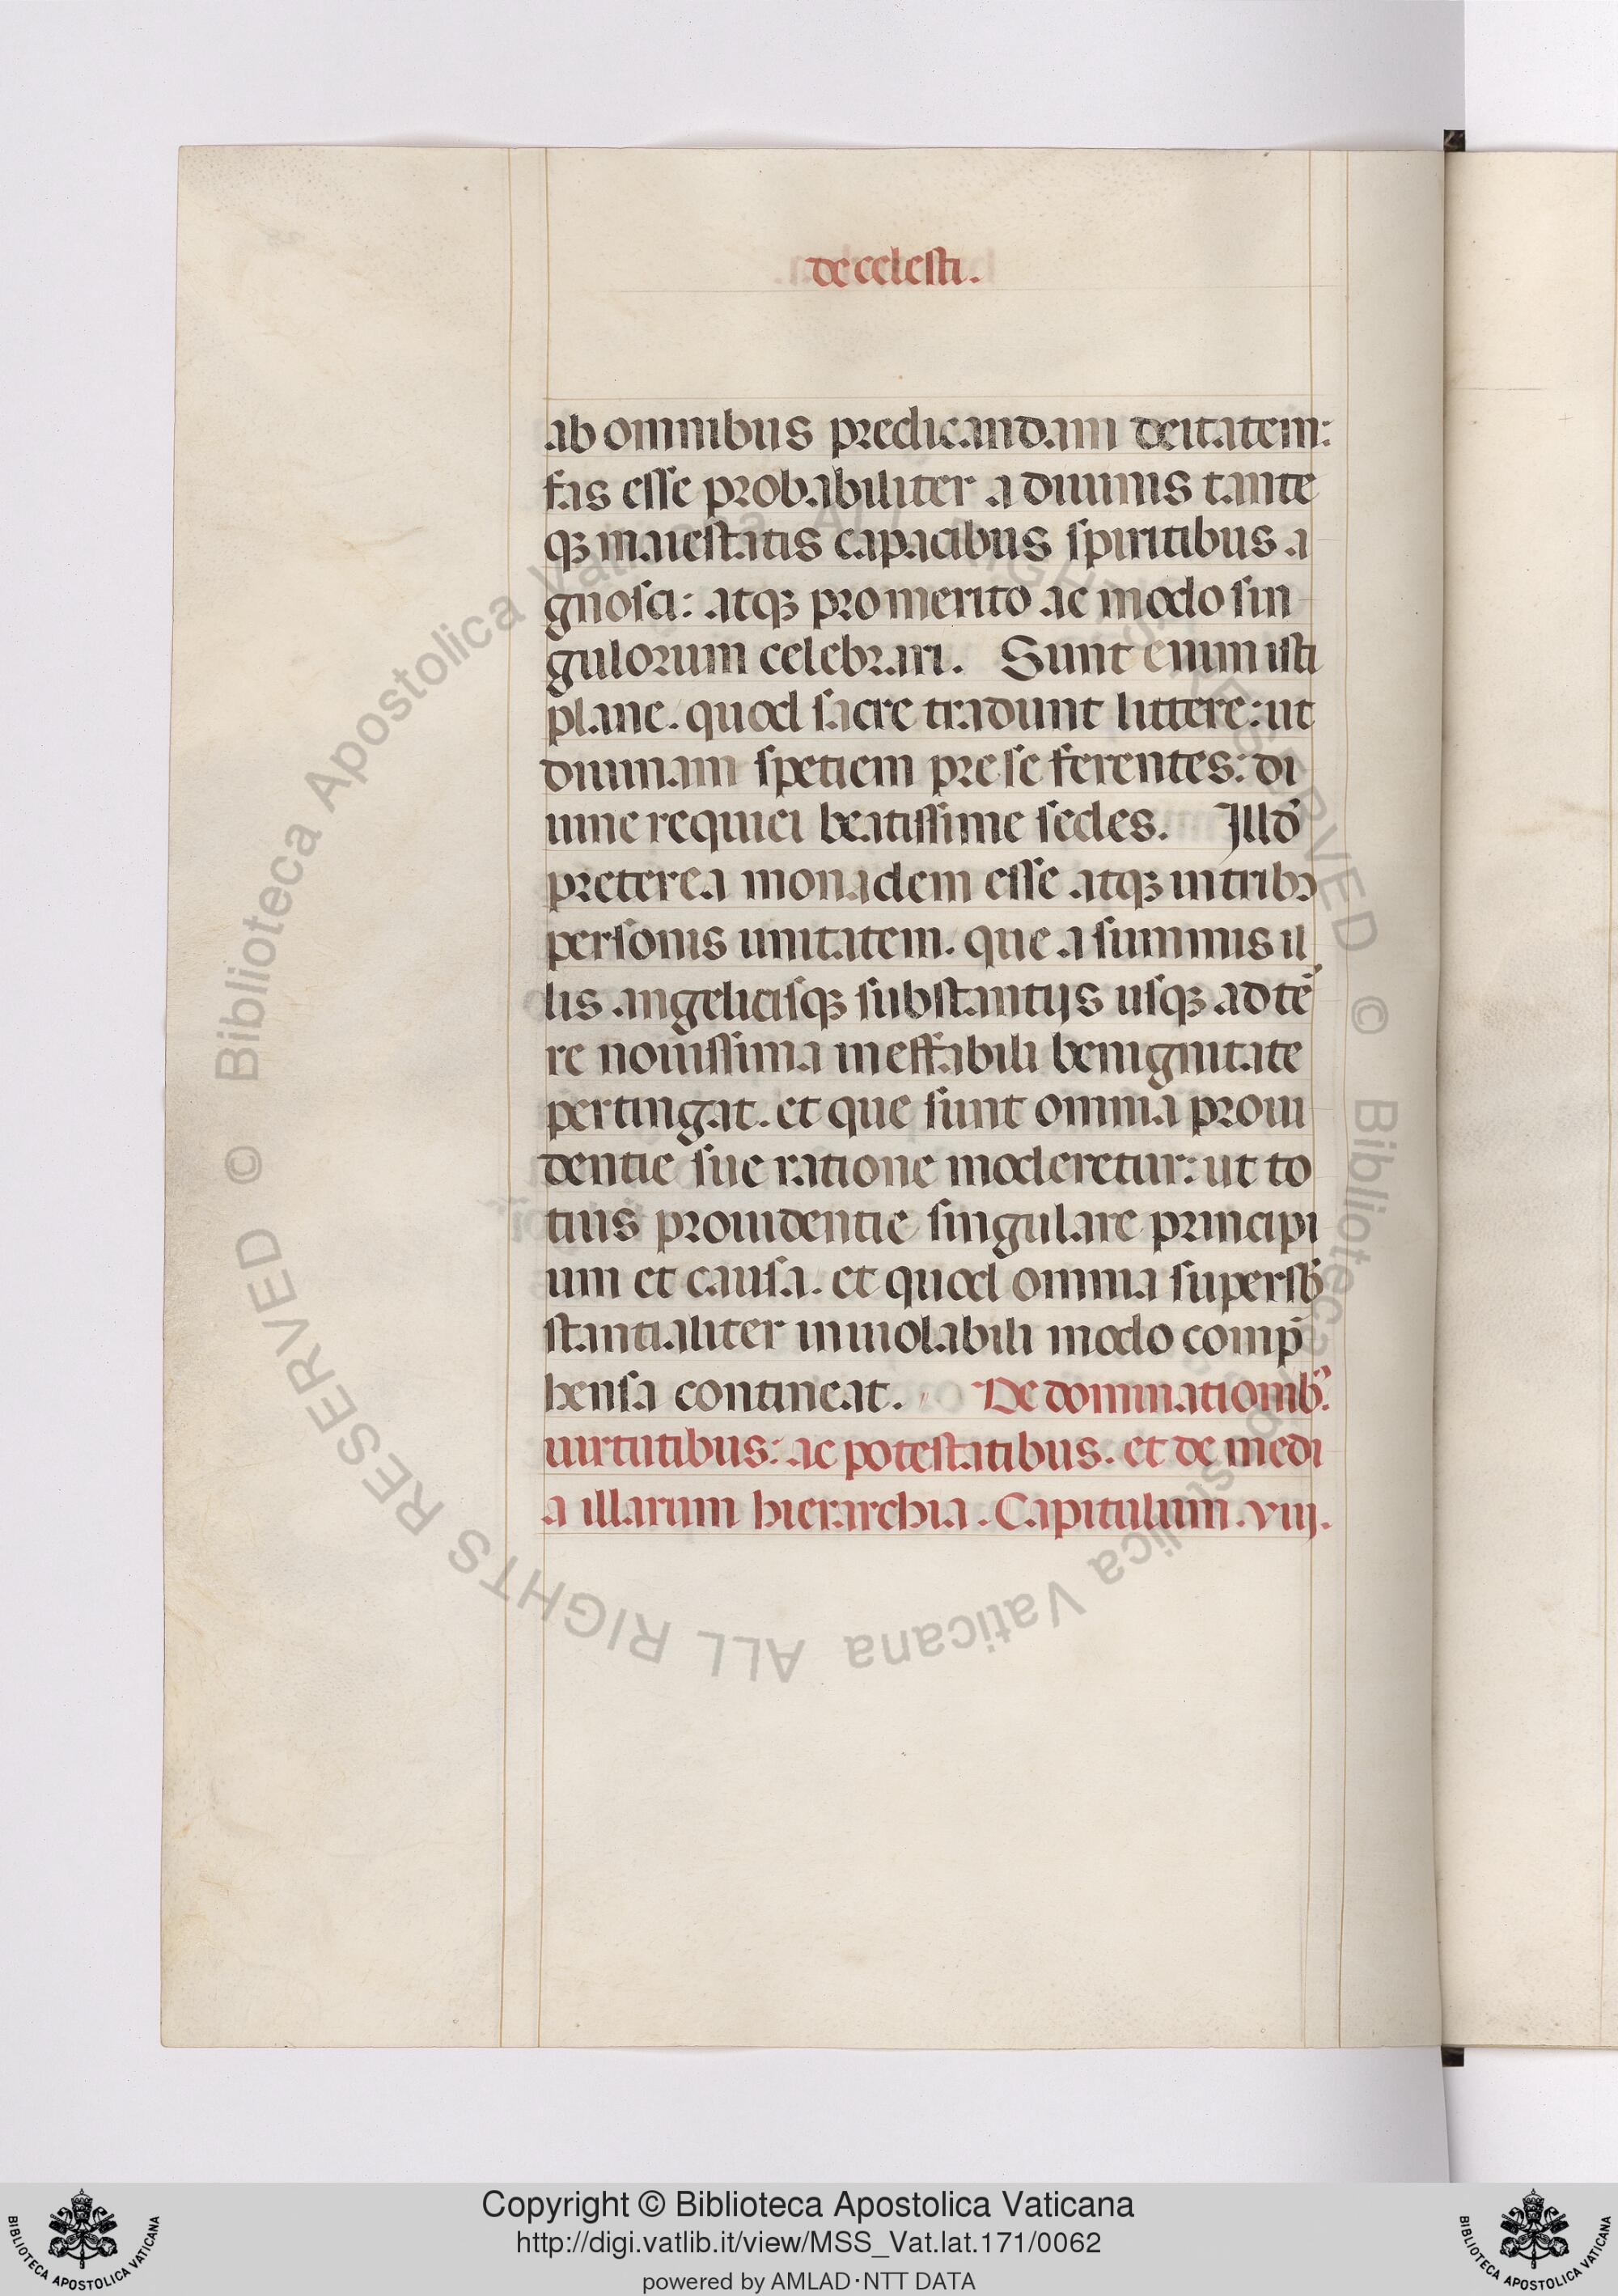 de celesti.
ab omnibus predicandam deitatem:
fas esse probabiliter a diuinis tante
qꝫ maiestatis capacibus spiritibus a
gnosci: atqꝫ pro merito ac modo sin
gulorum celebrari. Sunt enim isti
plane. quod sacre tradunt littere: ut
diuinam spetiem pre se ferentes: di
uine requiei beatissime sedes. Illd̄
preterea monadem esse atqꝫ in tribꝰ
personis unitatem. que a summis il
lis angelicisqꝫ substantijs usqꝫ ad té
re nouissima ineffabili benignitate
pertingat. et que sunt omnia proui
dentie sue ratione moderetur: ut to
tius prouidentie singulare principi
um et causa. et quod omnia supersb̄
stantialiter inuiolabili modo comp̄
hensa contineat. De dominationibꝰ.
uirtutibus: ac potestatibus. et de medi
a illarum hierarchia. Capitulum. viij.
© Biblioteca Apostolica Vaticana ALL RIGHTS RESERVED © Biblioteca Apostolica Vaticana ALL RIGHTS RESERVED
Copyright © Biblioteca Apostolica Vaticana
http://digi.vatlib.it/view/MSS_Vat.lat.171/0062
powered by AMLAD·NTT DATA
BIBLIOTECA APOSTOLICA VATICANA
BIBLIOTECA APOSTOLICA VATICANA